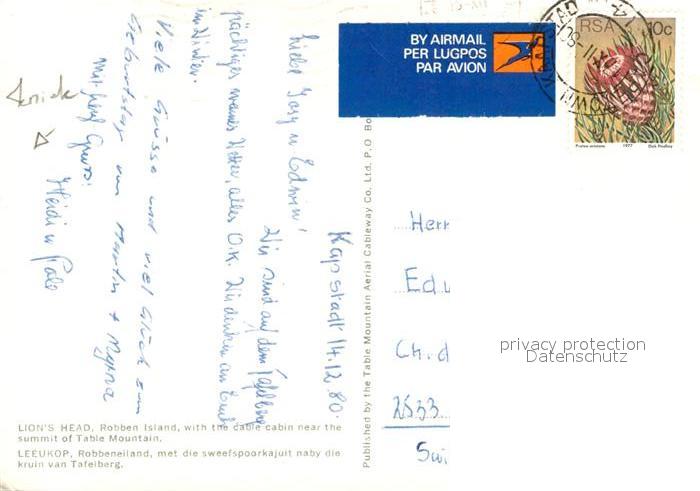 BY AIRMAIL
PER LUGPOS
PAR AVION
RSA 10c
1977
Dick Findlay
Kapstadt 14.12.80.
Liebe Josy u Edwin!
Wir sind auf dem Tafelberg
prächtiges warmes Wetter, alles O.K. Wir denken an Euch
im Winter.
Viele Grüsse und viel Glück zum
Geburtstag von Martin + Myrna
mit Gruss:
Heidi u
Published by the Table Mountain Aerial Cableway Co. Ltd. P.O. Bo
Herr
Ed
Ch. d
2533
Swi
privacy protection
Datenschutz
LION'S HEAD, Robben Island, with the cable cabin near the
summit of Table Mountain.
LEEUKOP, Robbeneiland, met die sweefspoorkajuit naby die
kruin van Tafelberg.